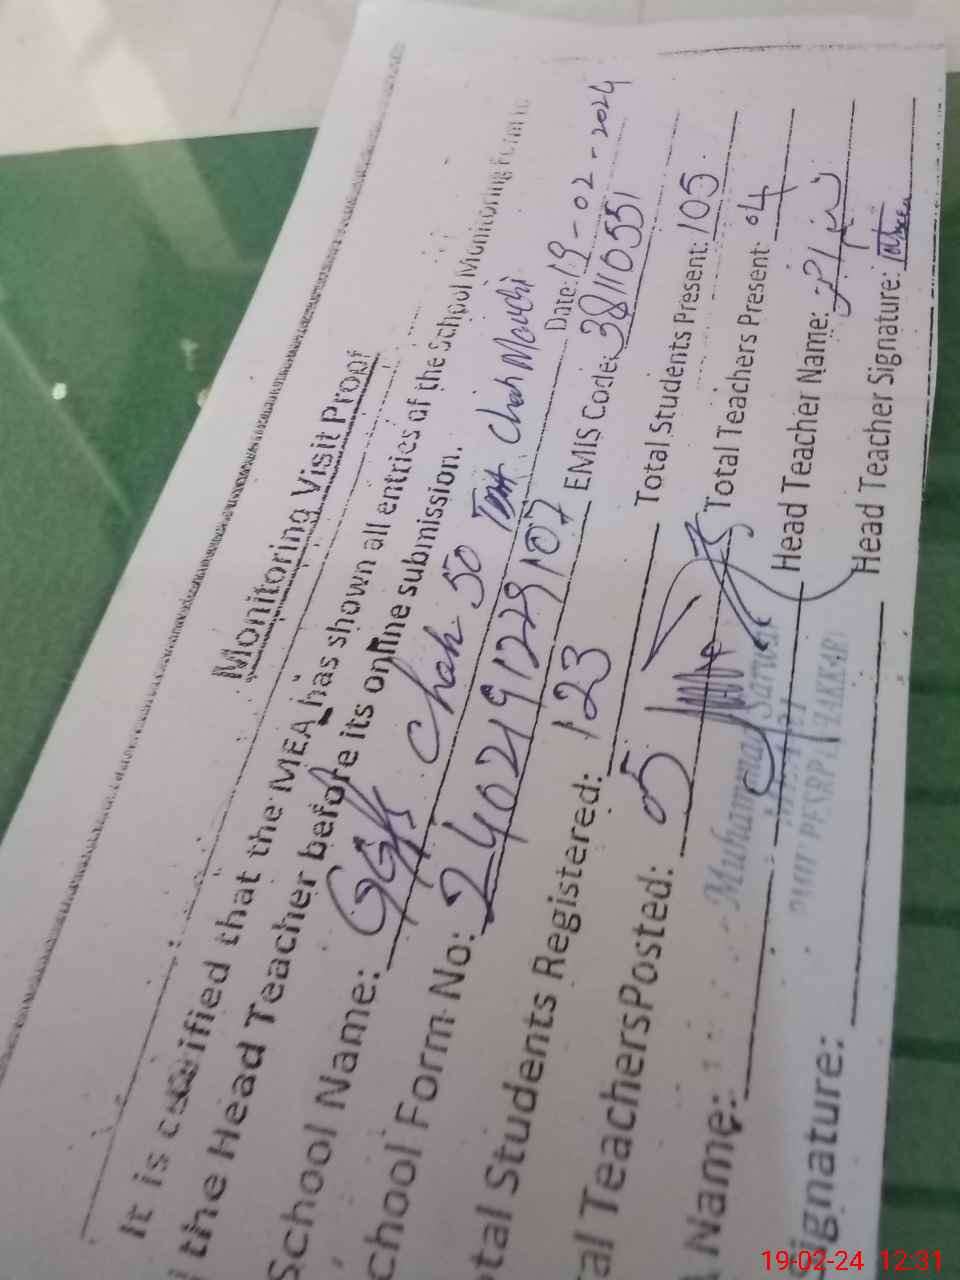 Monitoring Visit Proof
It is certified that the MEA has shown all entries of the School Monitoring Form to
the Head Teacher before its online submission.
School Name: Chak 50 Chah Mauchi
chool Form No: 2402191229107 Date: 19-02-2024
otal Students Registered: 123 EMIS Code: 38110551
al TeachersPosted: 05 Total Students Present: 105
Name: Muhammad Sarwar Total Teachers Present: 04
Head Teacher Name:
ignature: Head Teacher Signature:
19-02-24 12:31